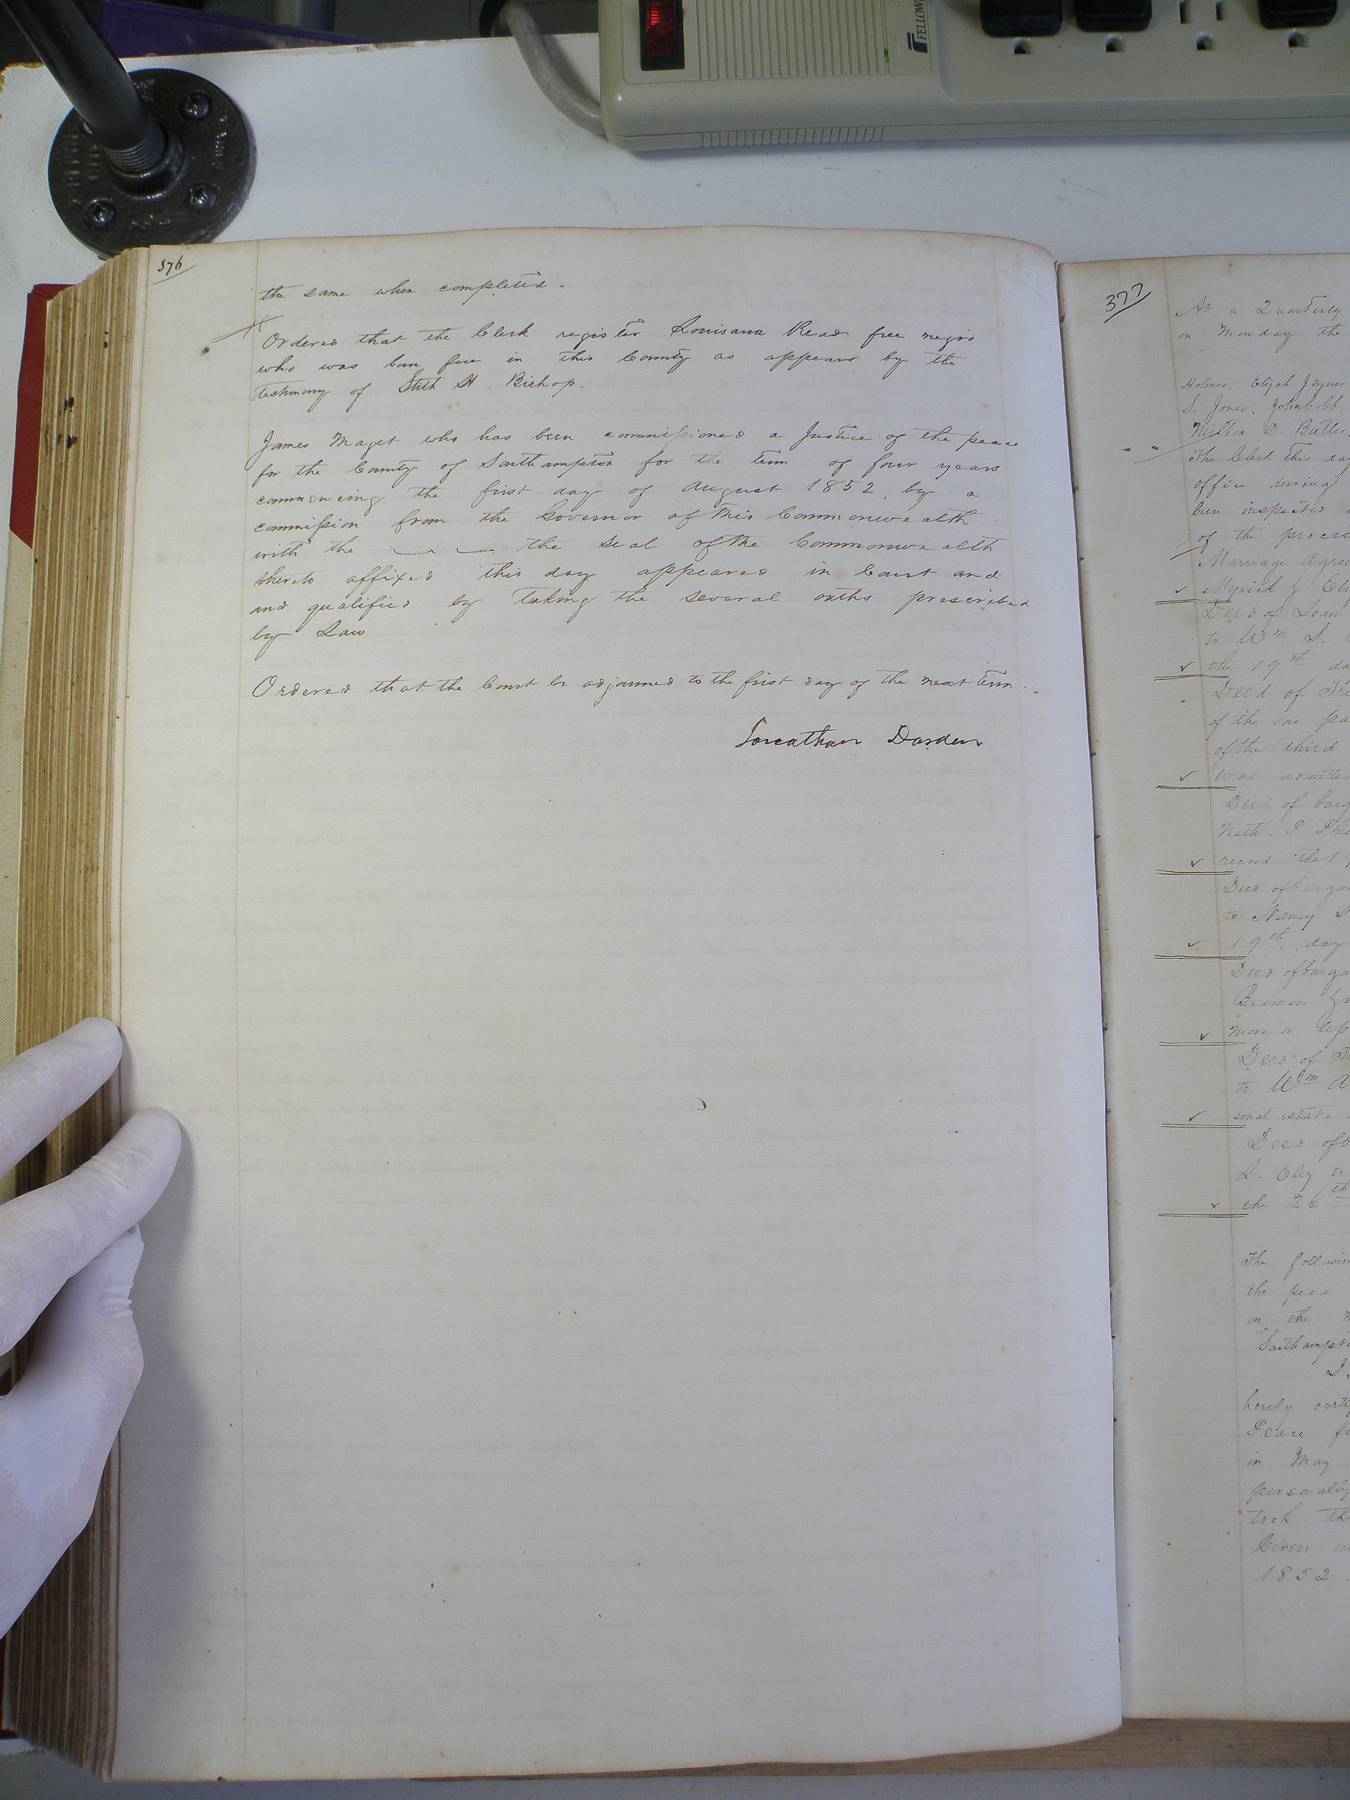 FELLOW
376
the same when completed.
Ordered that the Clerk register Louisana Read free negro
who was born free in this County as appears by the
testimony of Stith H. Bishop.
James Maget who has been commissioned a Justice of the peace
for the County of Southampton for the term of four years
commencing the first day of August 1852, by a
commission from the Governor of this Commonwealth
with the the seal of the Commonwealth
thereto affixed this day appeared in Court and
and qualified by taking the several oaths prescribed
by Law
Ordered that the Court be adjourned to the first day of the next term.
Jonathan Darden
377
At a Quarterly
on Monday the
Holmes, Elijah Joyner
S. Jones, John Cobb
Milton D. Butler
The Clerk this day
office during
been inspected
of the proce
Marriage Agree
Myrick &
Deed of
to Wm S.
the 19th da
Deed of Tru
of the one pa
of the third
was admitted
Deed of barg
Nath. P
record the 1
Deed of barga
to Nancy
19th day
Deed of barga
Beamon &
more a
Deed of T
to Wm A
said estate
Deed of b
S. Ely
the 26th
The followin
the peace
on the
Southampt
hereby certi
Peace f
in May
personally
took the
Given
1852